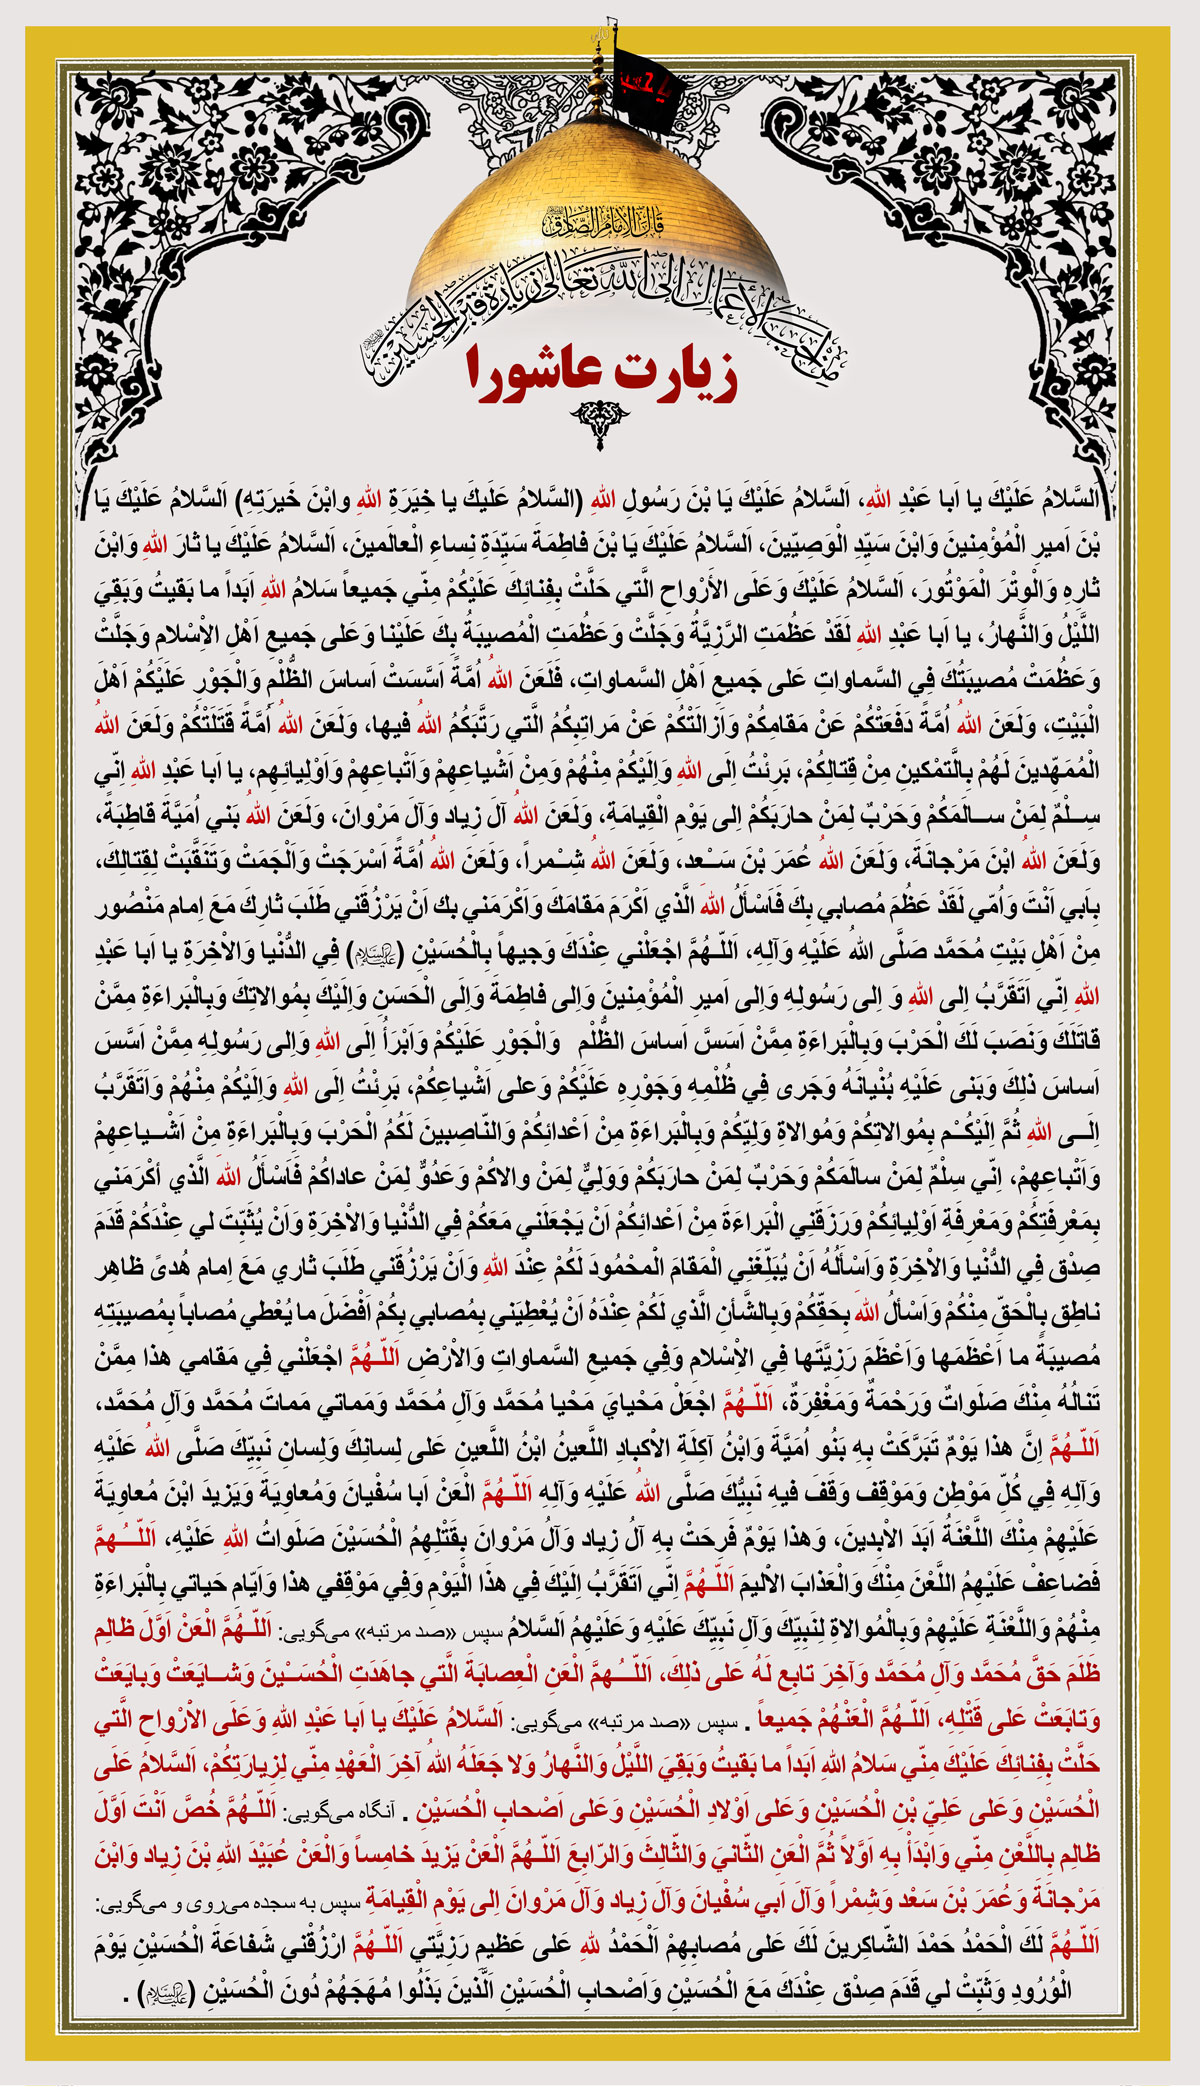 یا حسین
قالَ الاِمامُ الصّادِق
مِن اَحَبِّ الأَعمالِ اِلَی اللهِ تَعالی زِیارَةُ قَبرِ الحُسَین
زیارت عاشورا
اَلسَّلامُ عَلَيْكَ يا اَبا عَبْدِ اللهِ، اَلسَّلامُ عَلَيْكَ يَا بْنَ رَسُولِ اللهِ (السَّلامُ عَلَيكَ يا خِيَرَةِ اللهِ وابْنَ خَيرَتِهِ) اَلسَّلامُ عَلَيْكَ يَا
بْنَ اَميرِ الْمُؤْمِنينَ وَابْنَ سَيِّدِ الْوَصِيّينَ، اَلسَّلامُ عَلَيْكَ يَا بْنَ فاطِمَةَ سَيِّدَةِ نِساءِ الْعالَمينَ، اَلسَّلامُ عَلَيْكَ يا ثارَ اللهِ وَابْنَ
ثارِهِ وَالْوِتْرَ الْمَوْتُورَ، اَلسَّلامُ عَلَيْكَ وَعَلَى الأَرْواحِ الَّتي حَلَّتْ بِفِنائِكَ عَلَيْكُمْ مِنّي جَميعاً سَلامُ اللهِ اَبَداً ما بَقيتُ وَبَقِيَ
اللَّيْلُ وَالنَّهارُ، يا اَبا عَبْدِ اللهِ لَقَدْ عَظُمَتِ الرَّزِيَّةُ وَجَلَّتْ وَعَظُمَتِ الْمُصيبَةُ بِكَ عَلَيْنا وَعَلى جَميعِ اَهْلِ الاْسْلامِ وَجَلَّتْ
وَعَظُمَتْ مُصيبَتُكَ فِي السَّماواتِ عَلى جَميعِ اَهْلِ السَّماواتِ، فَلَعَنَ اللهُ اُمَّةً اَسَّسَتْ اَساسَ الظُّلْمِ وَالْجَوْرِ عَلَيْكُمْ اَهْلَ
الْبَيْتِ، وَلَعَنَ اللهُ اُمَّةً دَفَعَتْكُمْ عَنْ مَقامِكُمْ وَاَزالَتْكُمْ عَنْ مَراتِبِكُمُ الَّتي رَتَّبَكُمُ اللهُ فيها، وَلَعَنَ اللهُ اُمَّةً قَتَلَتْكُمْ وَلَعَنَ اللهُ
الْمُمَهِّدينَ لَهُمْ بِالَّتمْكينِ مِنْ قِتالِكُمْ، بَرِئْتُ اِلَى اللهِ وَاِلَيْكُمْ مِنْهُمْ وَمِنْ اَشْياعِهِمْ وَاَتْباعِهِمْ وَاَوْلِيائِهِم، يا اَبا عَبْدِ اللهِ اِنّي
سِــلْمٌ لِمَنْ ســالَمَكُمْ وَحَرْبٌ لِمَنْ حارَبَكُمْ اِلى يَوْمِ الْقِيامَةِ، وَلَعَنَ اللهُ آلَ زِياد وَآلَ مَرْوانَ، وَلَعَنَ اللهُ بَني اُمَيَّةَ قاطِبَةً،
وَلَعَنَ اللهُ ابْنَ مَرْجانَةَ، وَلَعَنَ اللهُ عُمَرَ بْنَ سَــعْد، وَلَعَنَ اللهُ شِــمْراً، وَلَعَنَ اللهُ اُمَّةً اَسْرَجَتْ وَاَلْجَمَتْ وَتَنَقَّبَتْ لِقِتالِكَ،
بِاَبي اَنْتَ وَاُمّي لَقَدْ عَظُمَ مُصابي بِكَ فَاَسْأَلُ اللهَ الَّذي اَكْرَمَ مَقامَكَ وَاَكْرَمَني بك اَنْ يَرْزُقَني طَلَبَ ثارِكَ مَعَ اِمام مَنْصُور
مِنْ اَهْلِ بَيْتِ مُحَمَّد صَلَّى اللهُ عَلَيْهِ وَآلِهِ، اَللّـهُمَّ اجْعَلْني عِنْدَكَ وَجيهاً بِالْحُسَيْنِ (علیه‌السلام) فِي الدُّنْيا وَالاْخِرَةِ يا اَبا عَبْدِ
اللهِ اِنّي اَتَقَرَّبُ اِلى اللهِ وَ اِلى رَسُولِهِ وَاِلى اَميرِ الْمُؤْمِنينَ وَاِلى فاطِمَةَ وَاِلَى الْحَسَنِ وَاِلَيْكَ بِمُوالاتِكَ وَبِالْبَراءَةِ مِمَّنْ
قاتَلَكَ وَنَصَبَ لَكَ الْحَرْبَ وَبِالْبَراءَةِ مِمَّنْ اَسَسَّ اَساسَ الظُّلْمِ وَالْجَوْرِ عَلَيْكُمْ وَاَبْرَأُ اِلَى اللهِ وَاِلى رَسُولِهِ مِمَّنْ اَسَّسَ
اَساسَ ذلِكَ وَبَنى عَلَيْهِ بُنْيانَهُ وَجَرى فِي ظُلْمِهِ وَجَوْرِهِ عَلَيْكُمْ وَعلى اَشْياعِكُمْ، بَرِئْتُ اِلَى اللهِ وَاِلَيْكُمْ مِنْهُمْ وَاَتَقَرَّبُ
اِلَــى اللهِ ثُمَّ اِلَيْكُــمْ بِمُوالاتِكُمْ وَمُوالاةِ وَلِيِّكُمْ وَبِالْبَراءَةِ مِنْ اَعْدائِكُمْ وَالنّاصِبينَ لَكُمُ الْحَرْبَ وَبِالْبَراءَةِ مِنْ اَشْــياعِهِمْ
وَاَتْباعِهِمْ، اِنّي سِلْمٌ لِمَنْ سالَمَكُمْ وَحَرْبٌ لِمَنْ حارَبَكُمْ وَوَلِيٌّ لِمَنْ والاكُمْ وَعَدُوٌّ لِمَنْ عاداكُمْ فَاَسْأَلُ اللهَ الَّذي أكْرَمَني
بِمَعْرِفَتِكُمْ وَمَعْرِفَةِ اَوْلِيائِكُمْ وَرَزَقَنِي الْبَراءَةَ مِنْ اَعْدائِكُمْ اَنْ يَجْعَلَني مَعَكُمْ فِي الدُّنْيا وَالاْخِرَةِ وَاَنْ يُثَبِّتَ لي عِنْدَكُمْ قَدَمَ
صِدْق فِي الدُّنْيا وَالاْخِرَةِ وَاَسْأَلُهُ اَنْ يُبَلِّغَنِي الْمَقامَ الْمحْمُودَ لَكُمْ عِنْدَ اللهِ وَاَنْ يَرْزُقَني طَلَبَ ثاري مَعَ اِمام هُدىً ظاهِر
ناطِق بِالْحَقِّ مِنْكُمْ وَاَسْألُ اللهَ بِحَقِّكُمْ وَبِالشَّأنِ الَّذي لَكُمْ عِنْدَهُ اَنْ يُعْطِيَني بِمُصابي بِكُمْ اَفْضَلَ ما يُعْطي مُصاباً بِمُصيبَتِهِ
مُصيبَةً ما اَعْظَمَها وَاَعْظَمَ رَزِيَّتَها فِي الاْسْلامِ وَفِي جَميعِ السَّماواتِ وَالاْرْضِ اَللّـهُمَّ اجْعَلْني فِي مَقامي هذا مِمَّنْ
تَنالُهُ مِنْكَ صَلَواتٌ وَرَحْمَةٌ وَمَغْفِرَةٌ، اَللّـهُمَّ اجْعَلْ مَحْيايَ مَحْيا مُحَمَّد وَآلِ مُحَمَّد وَمَماتي مَماتَ مُحَمَّد وَآلِ مُحَمَّد،
اَللّـهُمَّ اِنَّ هذا يَوْمٌ تَبَرَّكَتْ بِهِ بَنُو اُمَيَّةَ وَابْنُ آكِلَةِ الاْكبادِ اللَّعينُ ابْنُ اللَّعينِ عَلى لِسانِكَ وَلِسانِ نَبِيِّكَ صَلَّى اللهُ عَلَيْهِ
وَآلِهِ فِي كُلِّ مَوْطِن وَمَوْقِف وَقَفَ فيهِ نَبِيُّكَ صَلَّى اللهُ عَلَيْهِ وَآلِهِ اَللّـهُمَّ الْعَنْ اَبا سُفْيانَ وَمُعاوِيَةَ وَيَزيدَ ابْنَ مُعاوِيَةَ
عَلَيْهِمْ مِنْكَ اللَّعْنَةُ اَبَدَ الاْبِدينَ، وَهذا يَوْمٌ فَرِحَتْ بِهِ آلُ زِياد وَآلُ مَرْوانَ بِقَتْلِهِمُ الْحُسَيْنَ صَلَواتُ اللهِ عَلَيْهِ، اَللّـــهُمَّ
فَضاعِفْ عَلَيْهِمُ اللَّعْنَ مِنْكَ وَالْعَذابَ الاْليمَ اَللّـهُمَّ اِنّي اَتَقَرَّبُ اِلَيْكَ فِي هذَا الْيَوْمِ وَفِي مَوْقِفي هذا وَاَيّامِ حَياتي بِالْبَراءَةِ
مِنْهُمْ وَاللَّعْنَةِ عَلَيْهِمْ وَبِالْمُوالاةِ لِنَبِيِّكَ وَآلِ نَبِيِّكَ عَلَيْهِ وَعَلَيْهِمُ اَلسَّلامُ سپس «صد مرتبه» می‌گویی: اَللّـهُمَّ الْعَنْ اَوَّلَ ظالِم
ظَلَمَ حَقَّ مُحَمَّد وَآلِ مُحَمَّد وَآخِرَ تابِع لَهُ عَلى ذلِكَ، اَللّـــهُمَّ الْعَنِ الْعِصابَةَ الَّتي جاهَدَتِ الْحُسَــيْنَ وَشــايَعَتْ وَبايَعَتْ
وَتابَعَتْ عَلى قَتْلِهِ، اَللّـهُمَّ الْعَنْهُمْ جَميعاً . سپس «صد مرتبه» می‌گویی: اَلسَّلامُ عَلَيْكَ يا اَبا عَبْدِ اللهِ وَعَلَى الاْرْواحِ الَّتي
حَلَّتْ بِفِنائِكَ عَلَيْكَ مِنّي سَلامُ اللهِ اَبَداً ما بَقيتُ وَبَقِيَ اللَّيْلُ وَالنَّهارُ وَلا جَعَلَهُ اللهُ آخِرَ الْعَهْدِ مِنّي لِزِيارَتِكُمْ، اَلسَّلامُ عَلَى
الْحُسَيْنِ وَعَلى عَلِيِّ بْنِ الْحُسَيْنِ وَعَلى اَوْلادِ الْحُسَيْنِ وَعَلى اَصْحابِ الْحُسَيْنِ . آنگاه می‌گویی: اَللّـهُمَّ خُصَّ اَنْتَ اَوَّلَ
ظالِم بِاللَّعْنِ مِنّي وَابْدَأْ بِهِ اَوَّلاً ثُمَّ الْعَنِ الثّانيَ وَالثّالِثَ وَالرّابِعَ اَللّـهُمَّ الْعَنْ يَزيدَ خامِساً وَالْعَنْ عُبَيْدَ اللهِ بْنَ زِياد وَابْنَ
مَرْجانَةَ وَعُمَرَ بْنَ سَعْد وَشِمْراً وَآلَ اَبي سُفْيانَ وَآلَ زِياد وَآلَ مَرْوانَ اِلى يَوْمِ الْقِيامَةِ سپس به سجده می‌روی و می‌گویی:
اَللّـهُمَّ لَكَ الْحَمْدُ حَمْدَ الشّاكِرينَ لَكَ عَلى مُصابِهِمْ اَلْحَمْدُ للهِ عَلى عَظيمِ رَزِيَّتي اَللّـهُمَّ ارْزُقْني شَفاعَةَ الْحُسَيْنِ يَوْمَ
الْوُرُودِ وَثَبِّتْ لي قَدَمَ صِدْق عِنْدَكَ مَعَ الْحُسَيْنِ وَاَصْحابِ الْحُسَيْنِ الَّذينَ بَذَلُوا مُهَجَهُمْ دُونَ الْحُسَيْنِ (علیه‌السلام) .